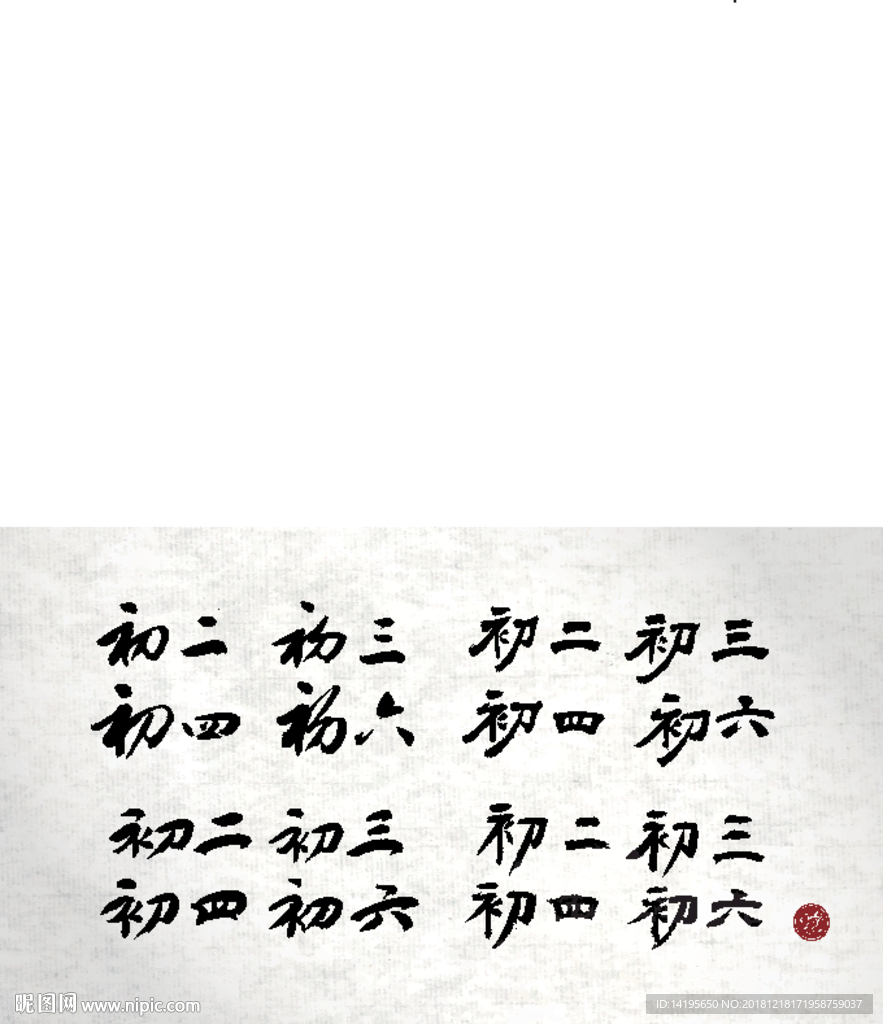 初二 初三 初二 初三
初四 初六 初四 初六
初二 初三 初二 初三
初四 初六 初四 初六
昵图网 www.nipic.com
ID:14195650 NO:20181218171958759037